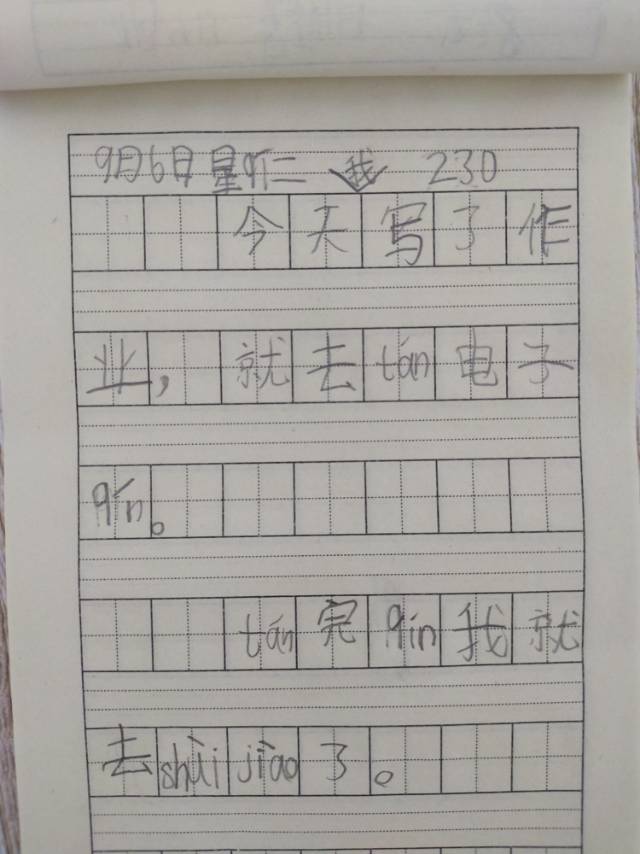 9月6日星期二 我 230
今天写了作
业，就去tán电子
qín。
tán完qín我就
去shùi jiào了。